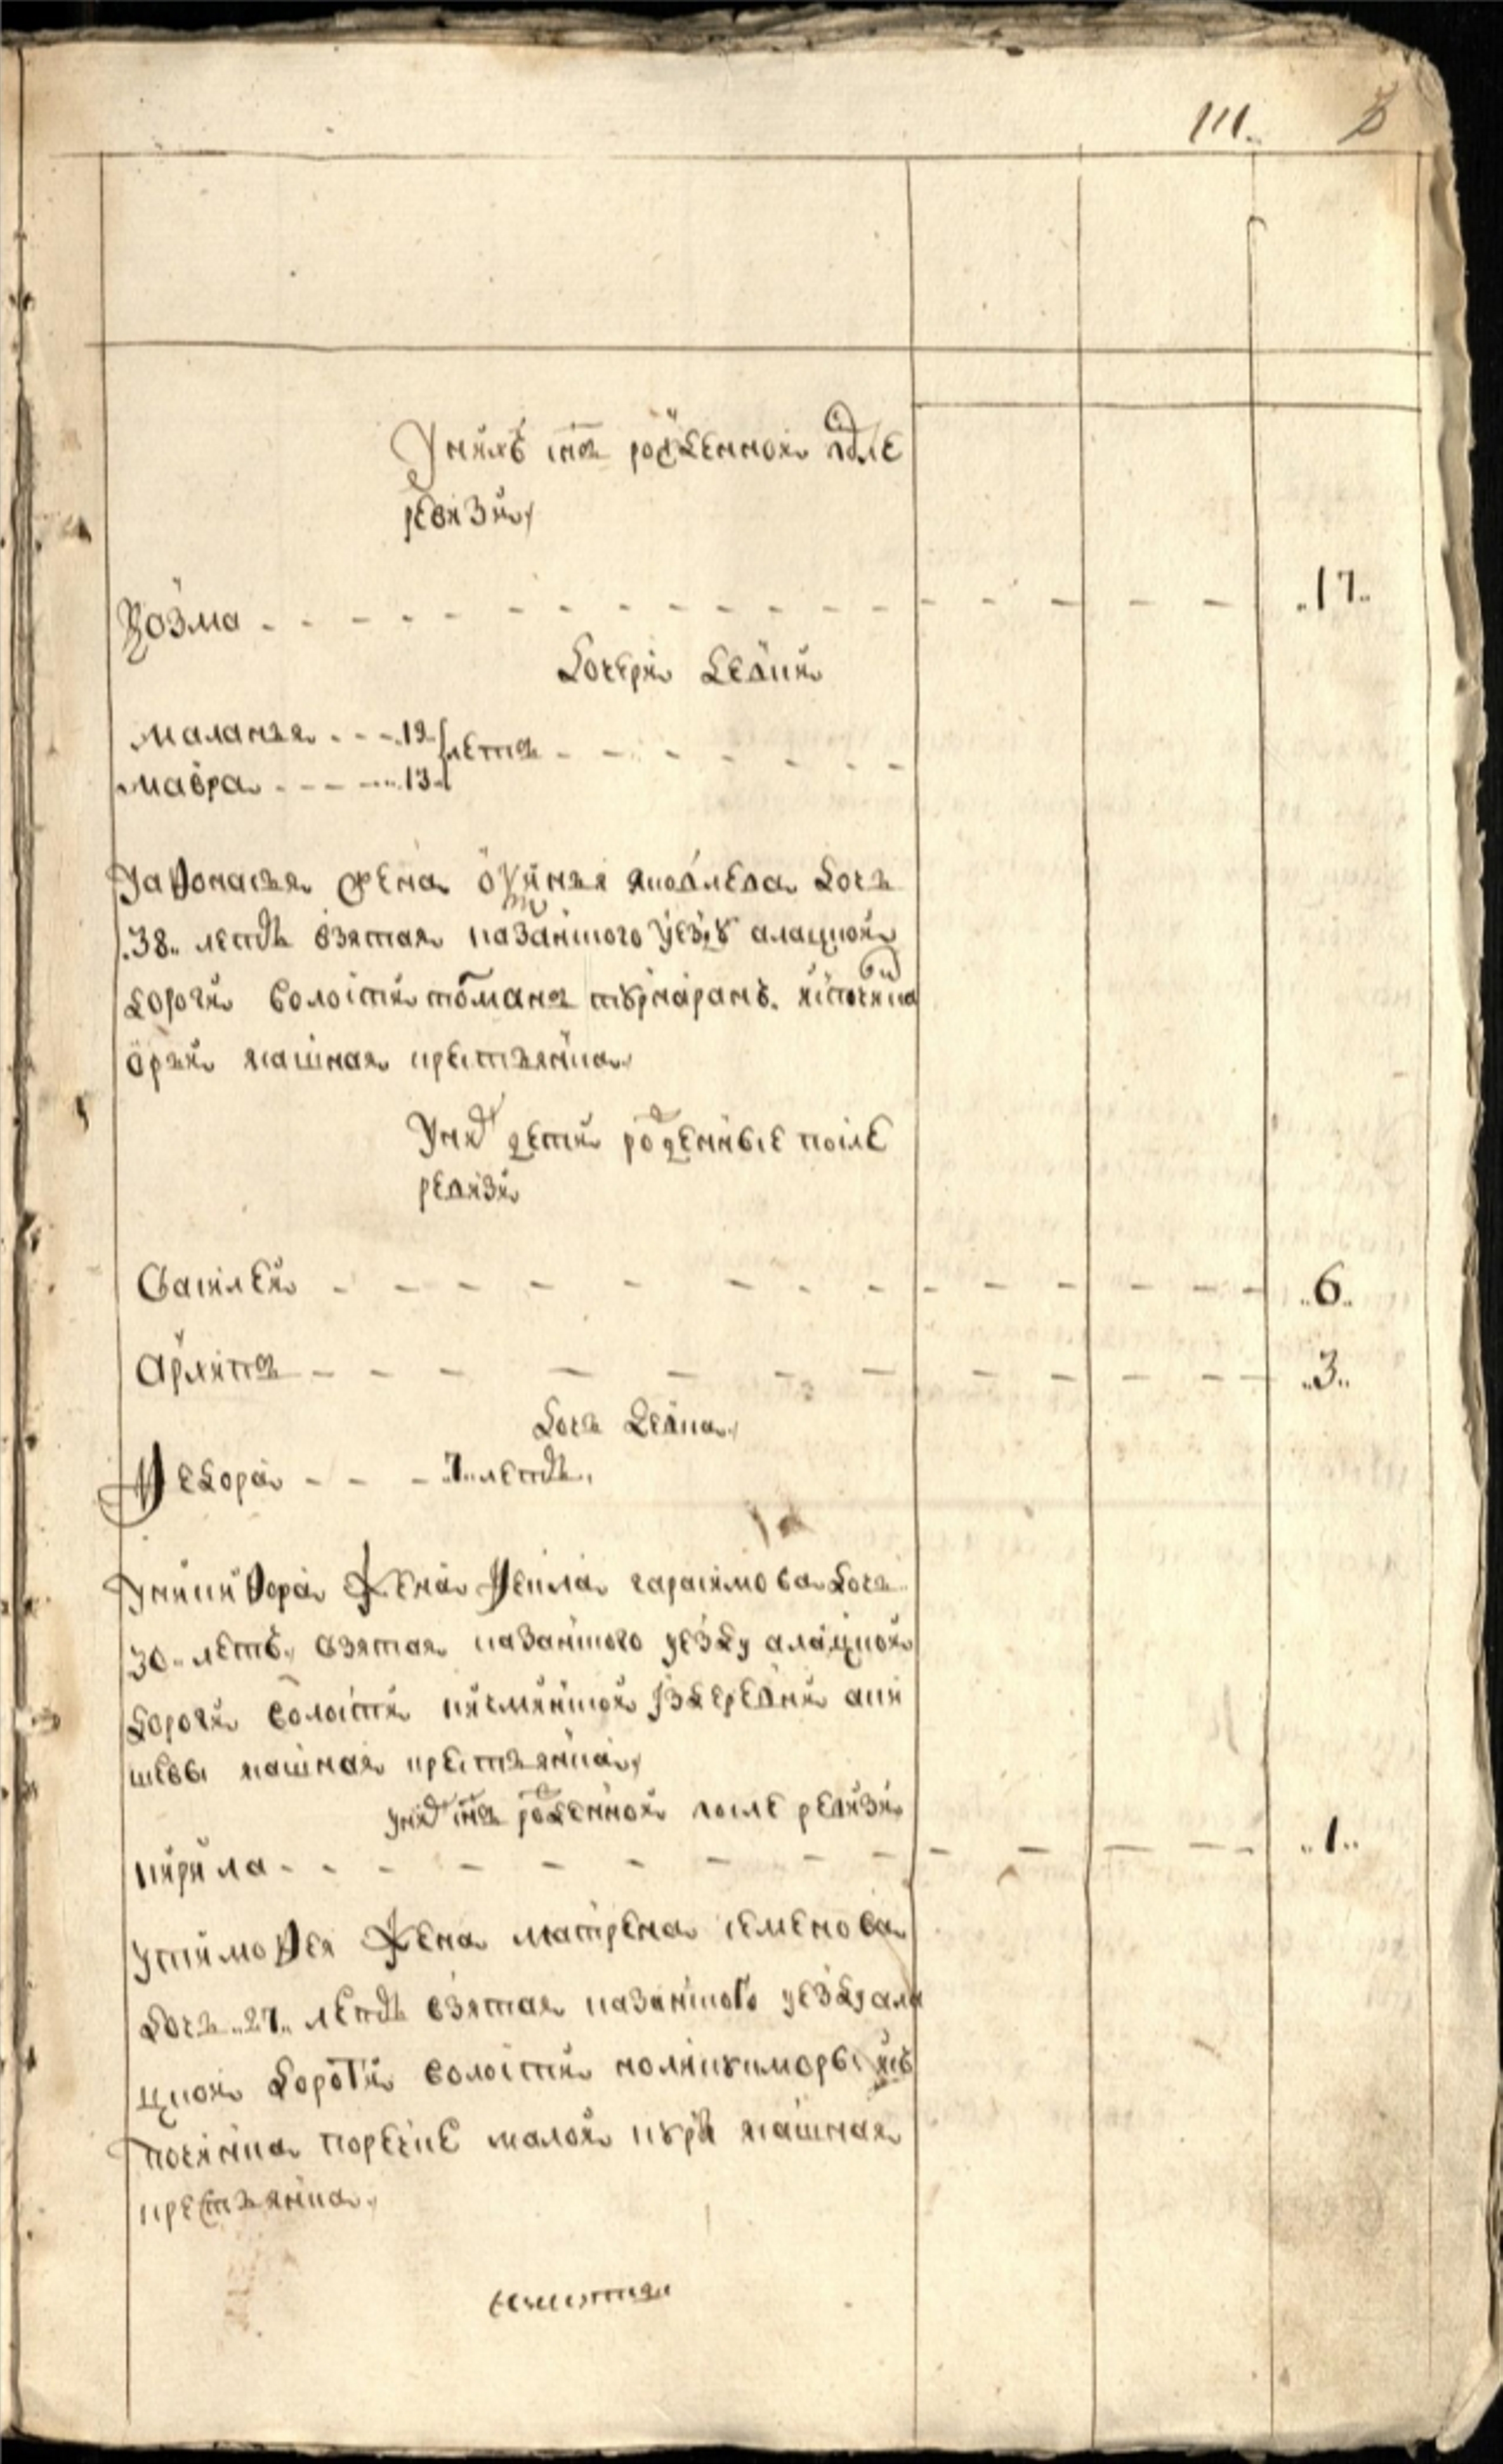 111.
У нихъ снъ рожденной после
ревизии
Козма - - - - - - - - ..17..
Дочери девки
маланья - - - 19 летъ - - - -
мавра - - - - 13
У афонасья жена овдинья яковлева дочь
.38.. летъ взятая казанского уезду алацкой
дороги волости
арзи ясашная крестьянка
У нихъ дети рожденные после
ревизи
Василей - - - - - - - - ..6..
Архипъ - - - - - - - - ..3..
Дочь девка
Федора - - - 7.. летъ
У никифора жена фекла гарасимова дочь
30.. летъ взятая казанского уезду алацкой
дороги волости
ясашная крестьянка
у нихъ снъ рожденной после ревизи
кирила - - - - - - - - ..1..
У тимофея жена матрена семенова
дочь ..27.. летъ взятая казанского уезду ала
цкой дороги волости
починка по речке малой ясашная
крестьянка